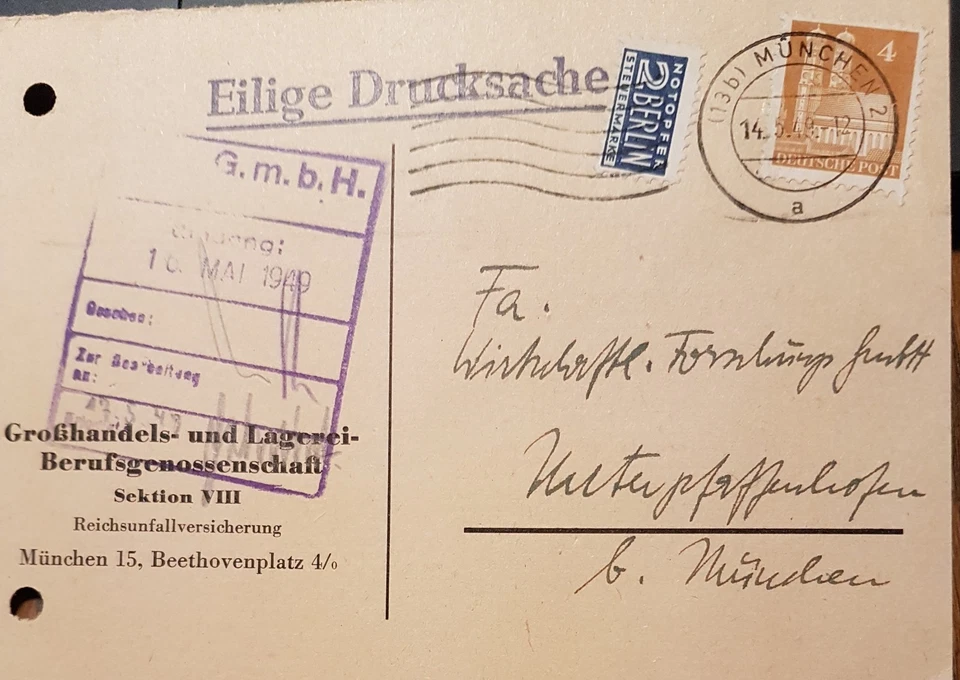 Eilige Drucksache
NOTOPFER
2 BERLIN
STEUERMARKE
(13b) MÜNCHEN 2
14.5.49.-12
a
4
DEUTSCHE POST
G.m.b.H.
MAI 1949
Gesehen:
Zur Bearbeitung
an:
Großhandels- und Lagerei-
Berufsgenossenschaft
Sektion VIII
Reichsunfallversicherung
München 15, Beethovenplatz 4/0
Fa.
Wirtschaftl. Forschungs GmbH
Unterpfaffenhofen
b. München